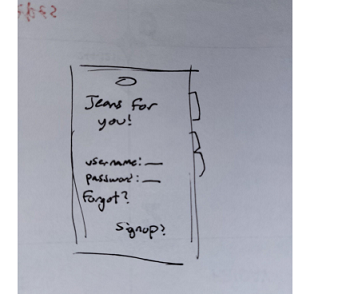 Jeans for
you!
username:
password:
Forgot?
Signup?